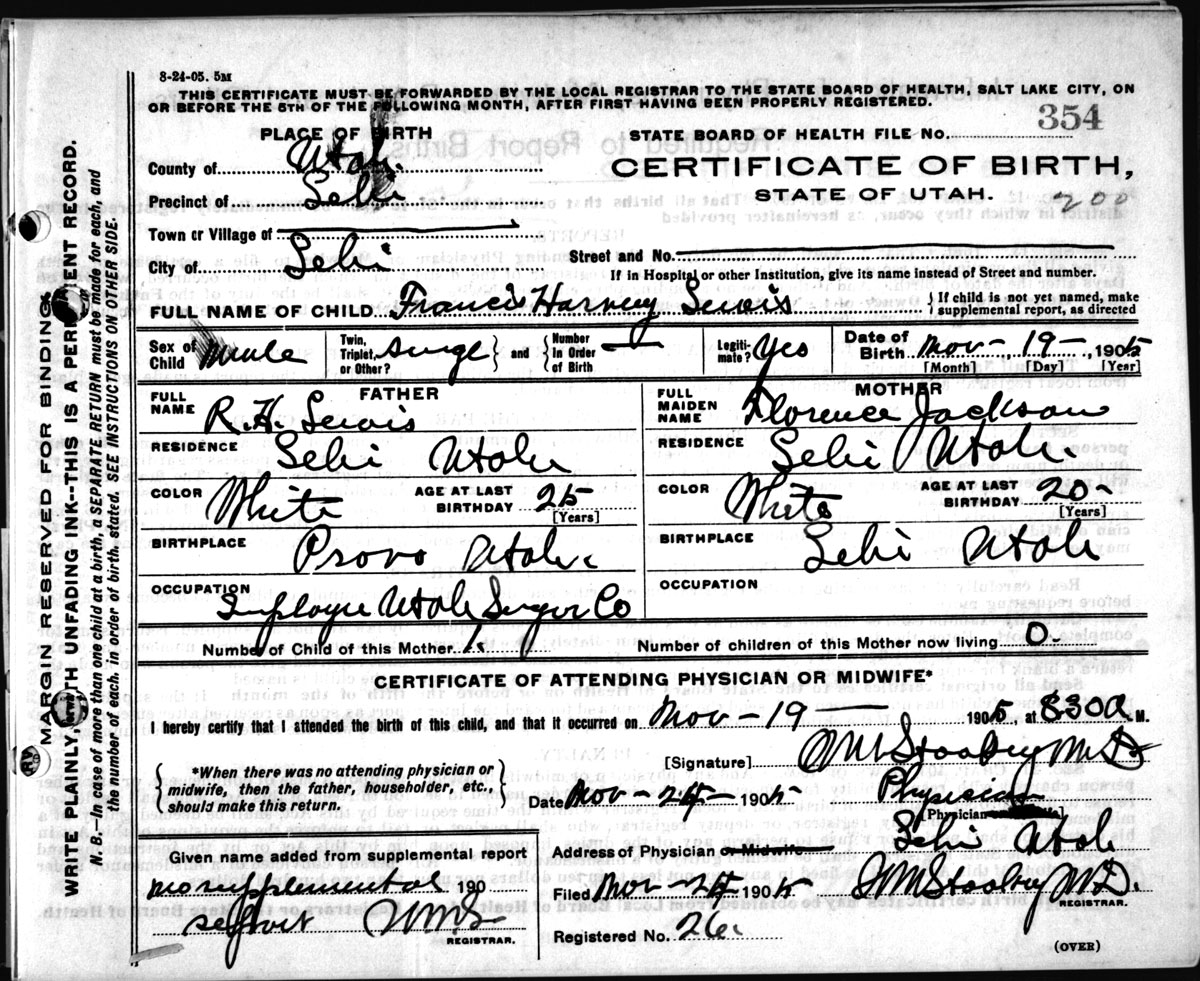 8-24-05. 5M
THIS CERTIFICATE MUST BE FORWARDED BY THE LOCAL REGISTRAR TO THE STATE BOARD OF HEALTH, SALT LAKE CITY, ON
OR BEFORE THE 5TH OF THE FOLLOWING MONTH, AFTER FIRST HAVING BEEN PROPERLY REGISTERED.
PLACE OF BIRTH
STATE BOARD OF HEALTH FILE NO. 354
County of Utah.
CERTIFICATE OF BIRTH,
Precinct of Lehi
STATE OF UTAH. 200
Town or Village of
City of Lehi
Street and No.
If in Hospital or other Institution, give its name instead of Street and number.
FULL NAME OF CHILD Francis Harvey Lewis
{ If child is not yet named, make supplemental report, as directed
Sex of Child Male
Twin, Triplet, or Other? single } and { Number in Order of Birth —
Legitimate? Yes
Date of Birth Nov - 19 - , 1905
[Month] [Day] [Year]
FATHER
FULL NAME R. H. Lewis
RESIDENCE Lehi Utah
COLOR White AGE AT LAST BIRTHDAY 25
[Years]
BIRTHPLACE Provo Utah.
OCCUPATION Employee Utah Sugar Co
MOTHER
FULL MAIDEN NAME Florence Jackson
RESIDENCE Lehi Utah.
COLOR White AGE AT LAST BIRTHDAY 20-
[Years]
BIRTHPLACE Lehi Utah
OCCUPATION
Number of Child of this Mother 1
Number of children of this Mother now living 0.
CERTIFICATE OF ATTENDING PHYSICIAN OR MIDWIFE*
I hereby certify that I attended the birth of this child, and that it occurred on Nov - 19 — 1905, at 830 A M.
[Signature] M.D.
{ *When there was no attending physician or midwife, then the father, householder, etc., should make this return. }
Date Nov - 25 - 1905 Physician
[Physician
Address of Physician or Midwife Lehi Utah
Given name added from supplemental report
no supplemental 190
REGISTRAR.
Filed Nov - 25 1905 M.D.
Registered No. 26
(OVER)
MARGIN RESERVED FOR BINDING
WRITE PLAINLY, WITH UNFADING INK--THIS IS A PERMANENT RECORD.
N. B.--In case of more than one child at a birth, a SEPARATE RETURN must be made for each, and
the number of each, in order of birth, stated. SEE INSTRUCTIONS ON OTHER SIDE.